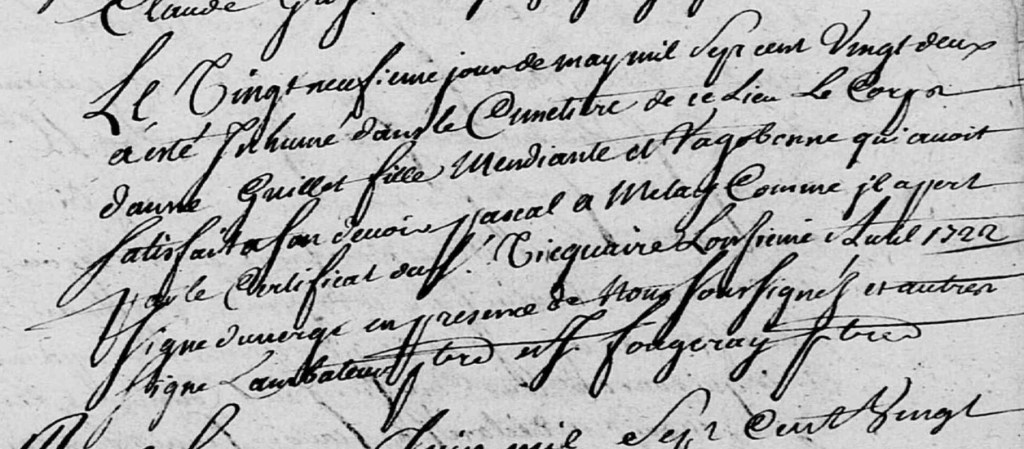 Claude
Le Vingt neufieme jour de may mil Sept cent Vingt deux
a esté Inhumé dans le Cimetiere de ce Lieu Le Corps
danne Guillet fille Mendiante et Vagobonne qui auoit
satisfait a son deuoir pascal a Melay Comme jl apert
par le Certificat du Sr. Vicquaire Lonsieme Auril 1722
signe duverge en presence de Nous soussignés et autres
signe Laurbateur ptre et J. Fougeray ptre
Juin mil Sept Cent Vingt